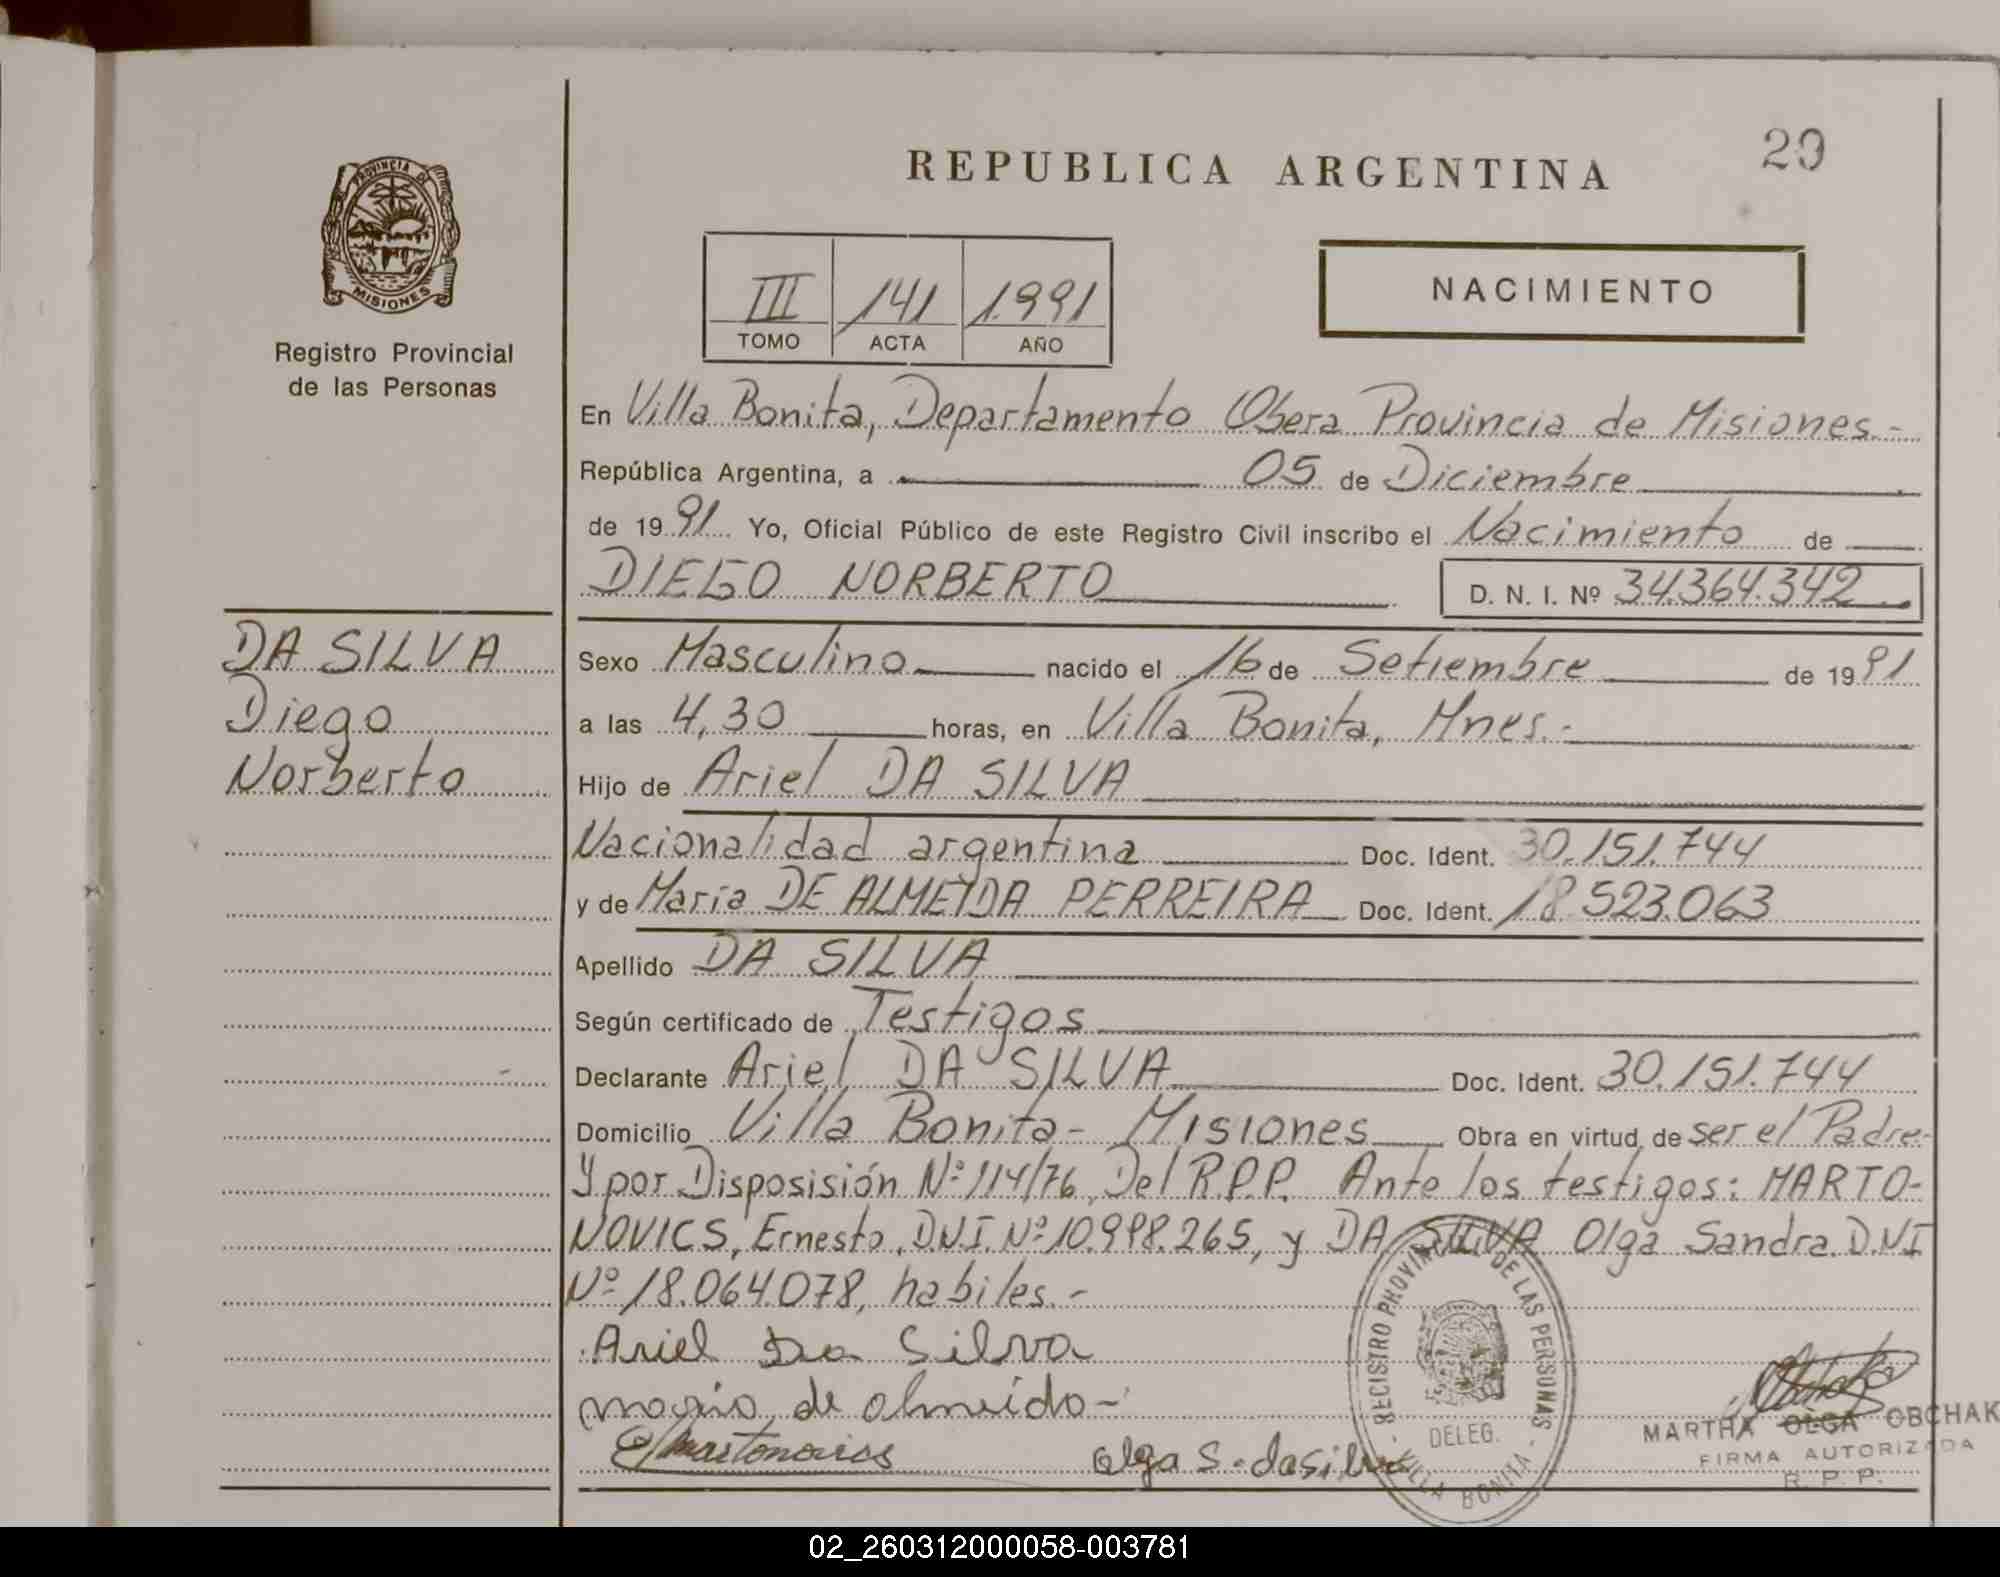 REPUBLICA ARGENTINA
29
PROVINCIA DE
MISIONES
Registro Provincial
de las Personas
III 141 1.991
TOMO ACTA AÑO
NACIMIENTO
En Villa Bonita, Departamento Obera Provincia de Misiones.-
República Argentina, a 05 de Diciembre
de 1991 Yo, Oficial Público de este Registro Civil inscribo el Nacimiento de
DIEGO NORBERTO D. N. I. Nº 34.364.342
DA SILVA
Diego
Norberto
Sexo Masculino nacido el 16 de Setiembre de 1991
a las 4,30 horas, en Villa Bonita, Mnes.-
Hijo de Ariel DA SILVA
Nacionalidad argentina Doc. Ident. 30.151.744
y de Maria DE ALMEIDA PERREIRA Doc. Ident. 18.523.063
Apellido DA SILVA
Según certificado de Testigos
Declarante Ariel DA SILVA Doc. Ident. 30.151.744
Domicilio Villa Bonita - Misiones Obra en virtud de ser el Padre-
Y por Disposisión Nº 114/76 Del R.P.P. Ante los testigos: MARTO-
NOVICS, Ernesto, D.N.I. Nº 10.998.265, y DA SILVA Olga Sandra. D.N.I
Nº 18.064.078, habiles.-
Ariel Da Silva
maria de almeida-
E Martonovics Olga S. dasilva
REGISTRO PROVINCIAL DE LAS PERSONAS
DELEG.
VILLA BONITA
MARTHA OLGA OBCHAK
FIRMA AUTORIZADA
R. P. P.
02_260312000058-003781